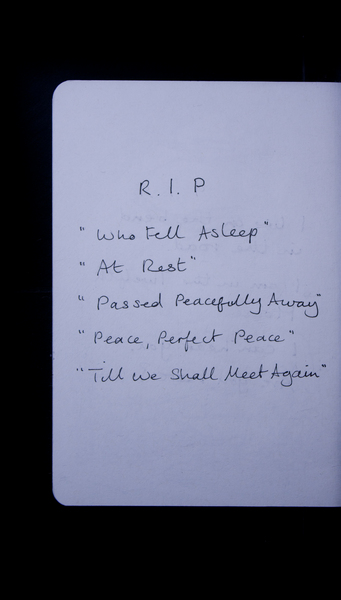 R.I.P
"Who Fell Asleep"
"At Rest"
"Passed Peacefully Away"
"Peace, Perfect Peace"
"Till We Shall Meet Again"